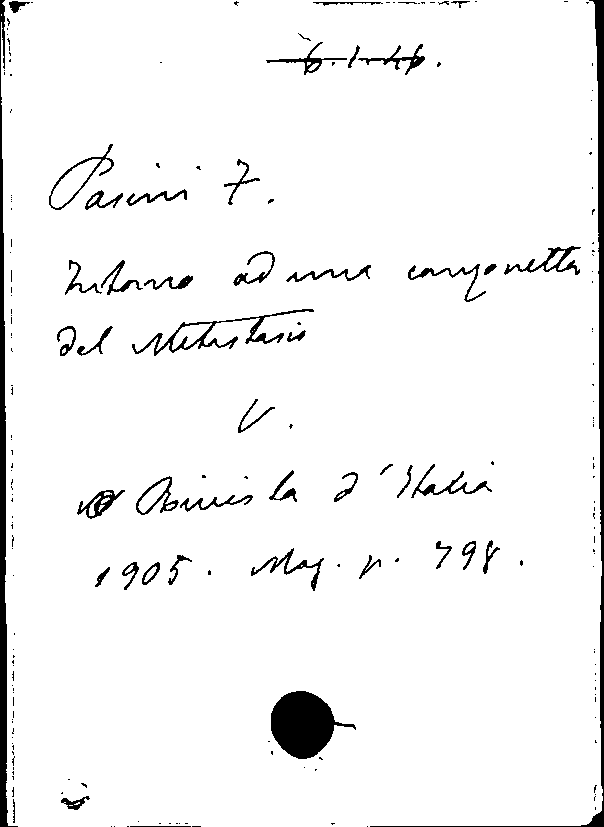 6.1.46.
Pasini F.
Intorno ad una canzonetta
del Metastasio
V.
Rivista d'Italia
1905. Mag. p. 798.